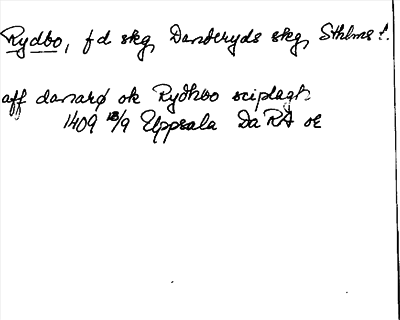 Rydbo, f d skg, Danderyds skg, Sthlms l.
aff danarø ok Rydhboo sciplagh
1409 18/9 Uppsala Da RA or